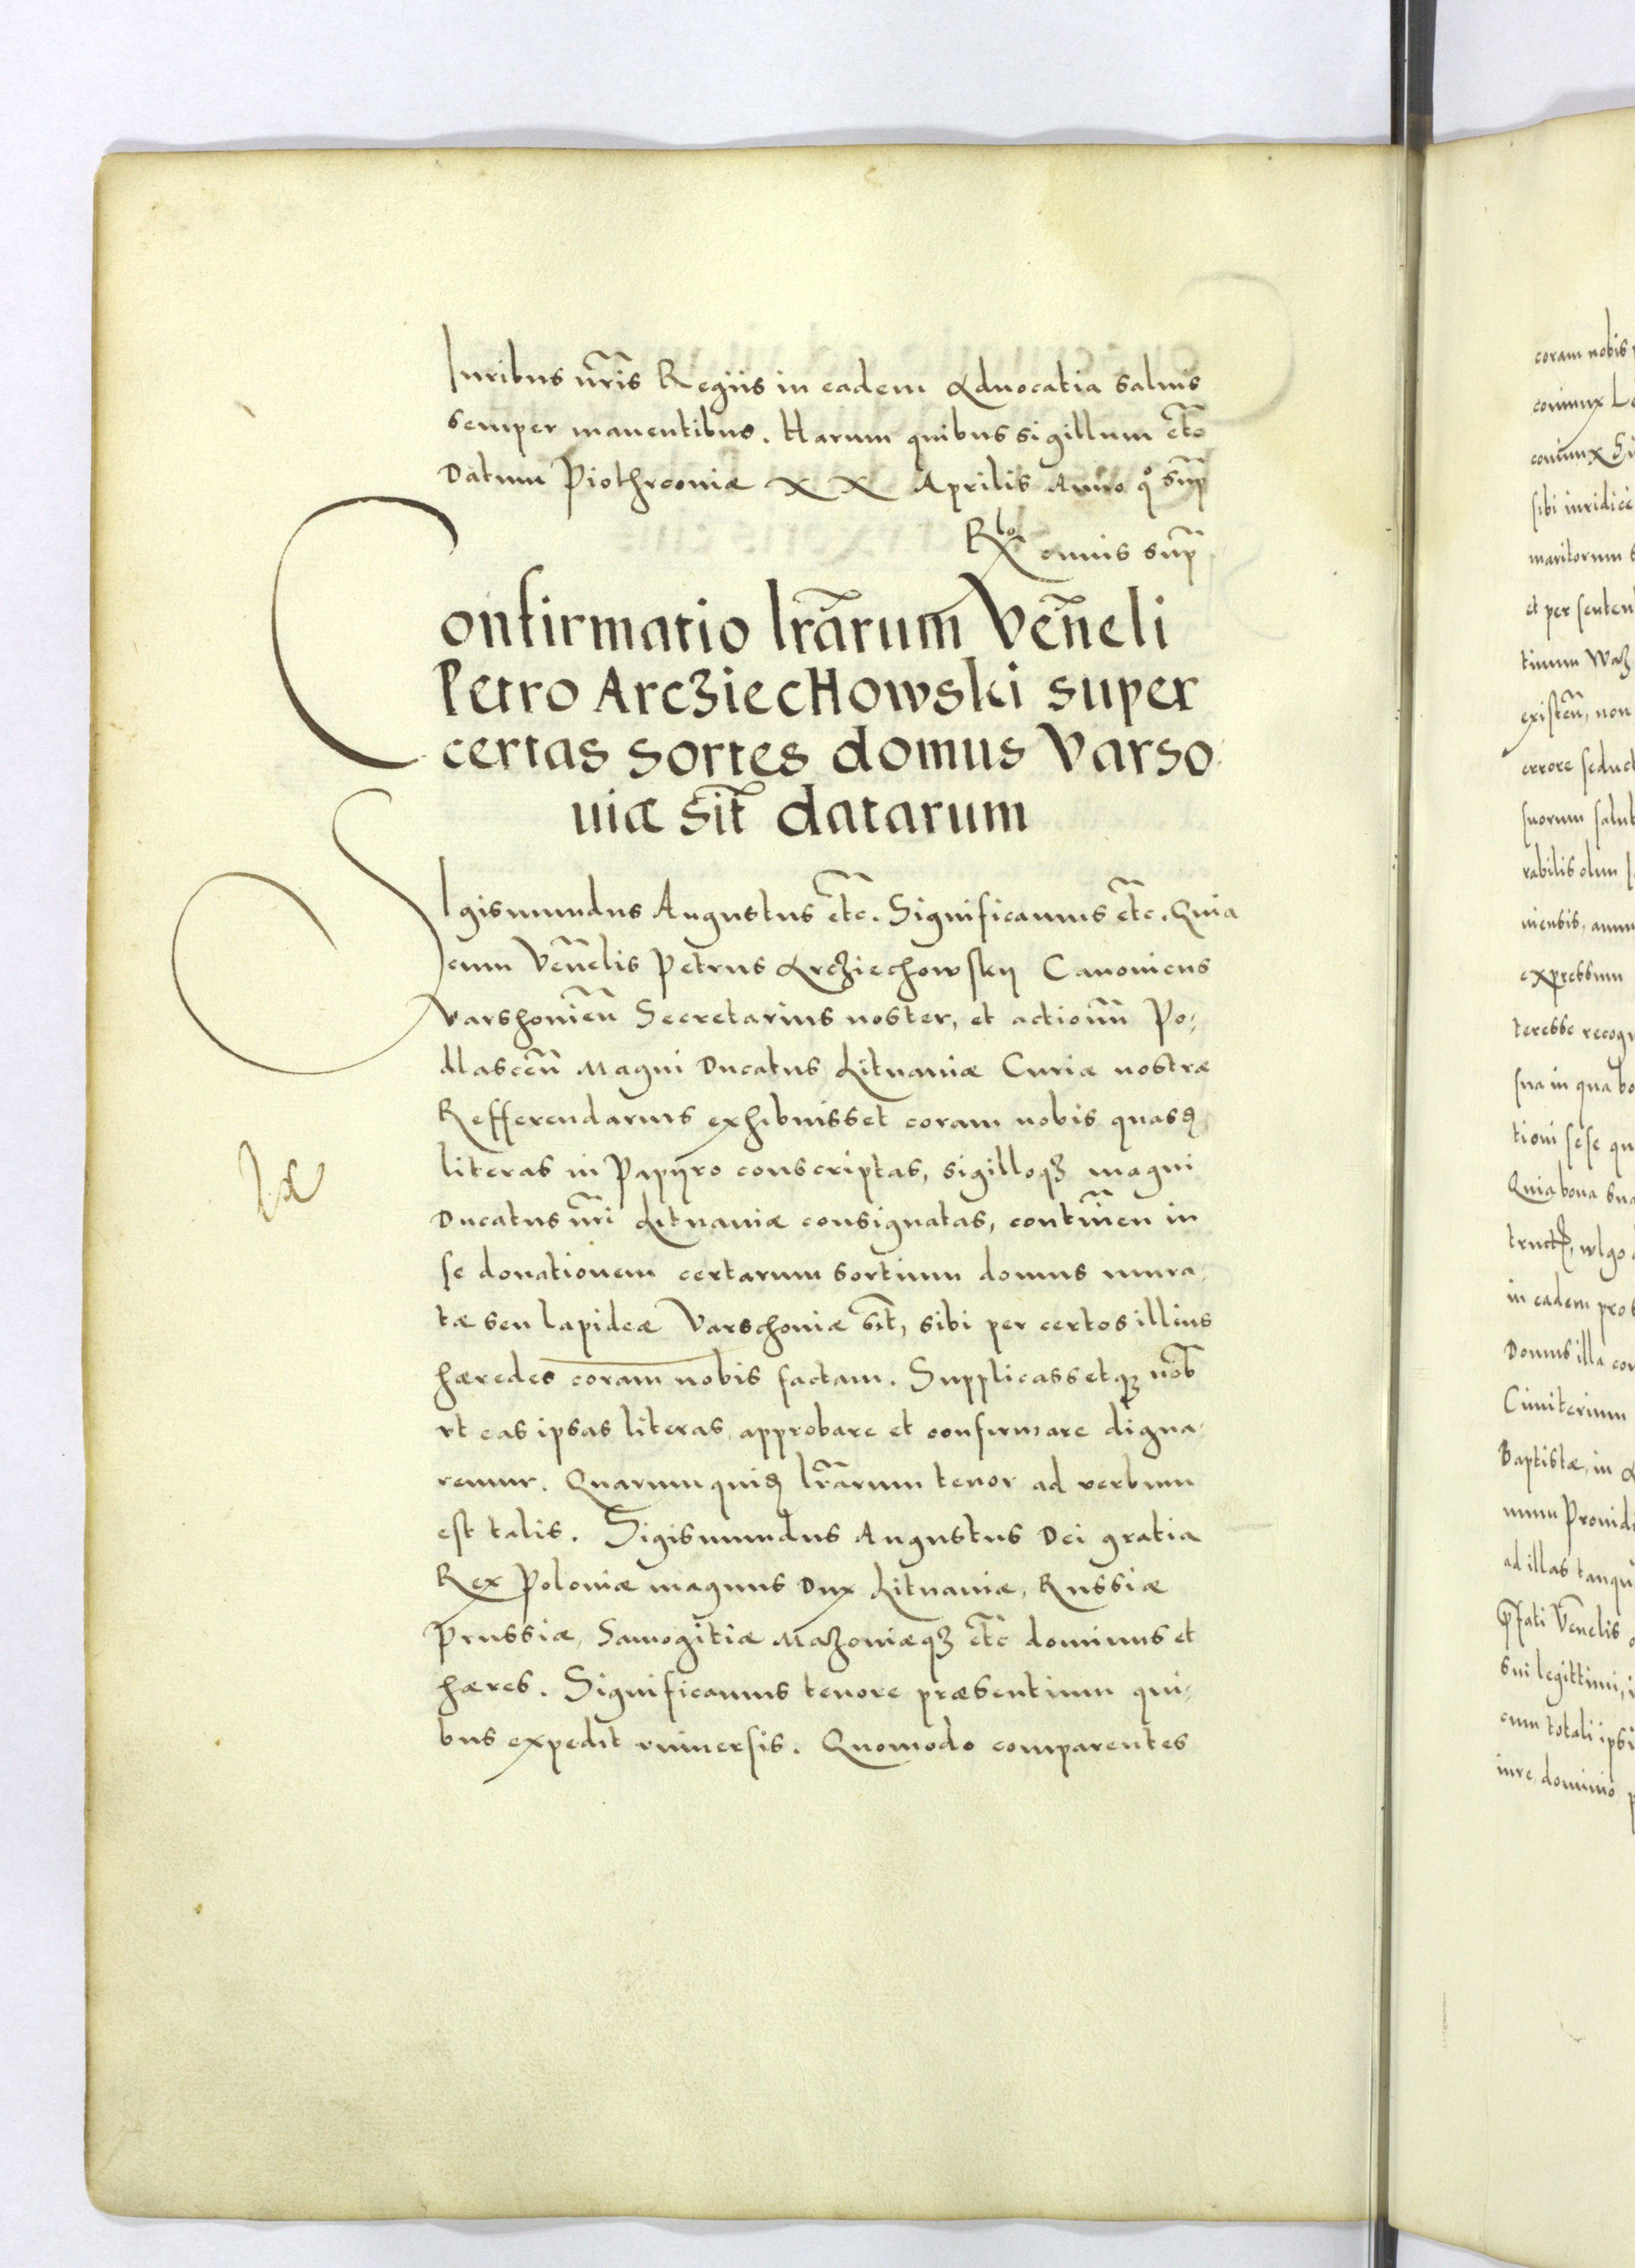 Iuribus nr̃is Regiis in eadem Aduocatia saluis
semper manentibus. Harum quibus sigillum etc̃
Datum Piothrcouiæ XX Aprilis Anno qº sup̃
Rlo omnis sup̃
Confirmatio lr̃arum Veñeli
Petro Arcziechowski super
certas sortes domus Varso
uiæ sit̃ datarum
Sigismundus Augustus etc̃. Significamus etc̃. Quia
cum Veñelis Petrus Arcziechowskij Canonicus
Varshouieñ Secretarius noster, et actionũ Po-
dlasceñ Magni Ducatus Lituaniæ Curiæ nostræ
Refferendarius exhibuisset coram nobis quasd
literas in Papyro conscriptas, sigilloqȝ magni
Ducatus nr̃i Lituaniæ consignatas, continẽn in
se donationem certarum sortium domus mura
tæ seu lapideæ Varschouiæ sit̃, sibi per certos illius
hæredes coram nobis factam. Supplicassetqȝ nob̃
vt eas ipsas literas approbare et confirmare digna
remur. Quarum quid lr̃arum tenor ad verbum
est talis. Sigismundus Augustus Dei gratia
Rex Poloniæ magnus Dux Lituaniæ, Russiæ
Prussiæ, Samogitiæ Mazouiæqȝ etc̃ dominus et
hæres. Significamus tenore præsentium qui-
bus expedit vniuersis. Quomodo comparentes
coram nobis
coniunx
coniunx
sibi iuridice
maritorum
et per senten
tinum Waz
existeñ, non
errore seduct
suorum salub
rabilis olim
uiensis, annu
expressum
teresse recogn
sua in qua bo
tioni sese qu
Quia bona sua
truct, wlgo
in eadem pro
Domus illa con
Cimiterium
Baptistæ, in
num Prouid
ad illas tanqu
p̃fati Veñelis
sui legittimi, i
cum totali ipsi
iure, dominio